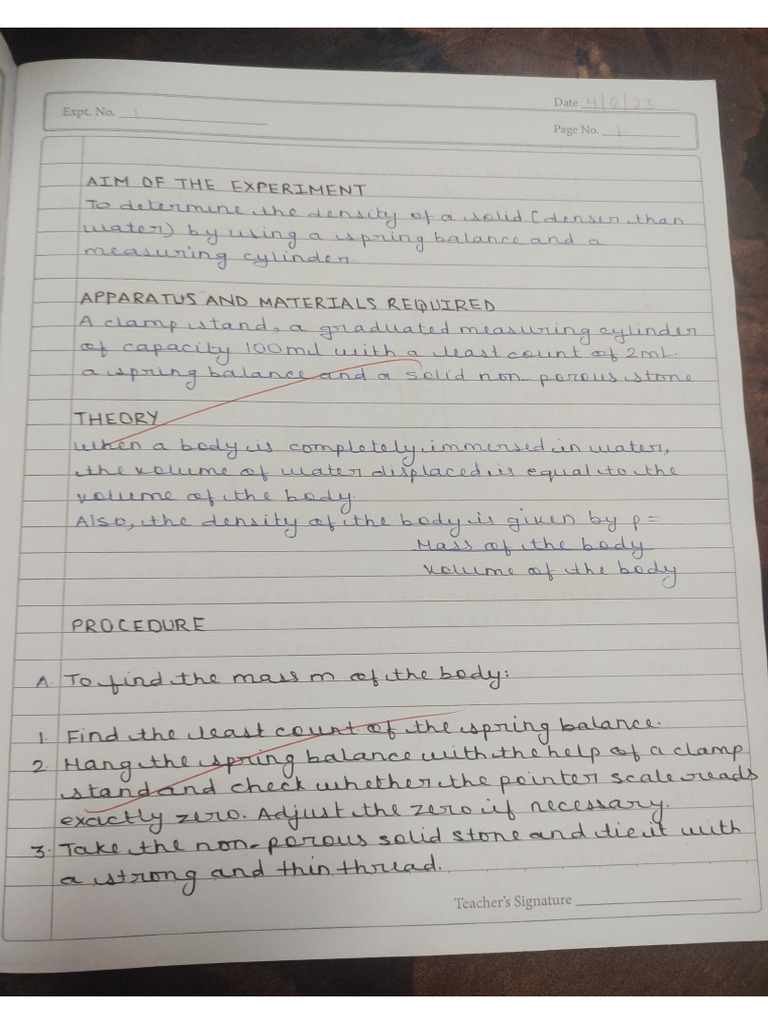 Date 4/8/23
Expt. No. 1
Page No. 1
AIM OF THE EXPERIMENT
To determine the density of a solid (denser than
water) by using a spring balance and a
measuring cylinder.
APPARATUS AND MATERIALS REQUIRED
A clamp stand, a graduated measuring cylinder
of capacity 100ml with a least count of 2mL.
a spring balance and a solid non-porous stone
THEORY
When a body is completely immersed in water,
the volume of water displaced is equal to the
volume of the body.
Also, the density of the body is given by p =
Mass of the body
volume of the body
PROCEDURE
A. To find the mass m of the body:
1. Find the least count of the spring balance.
2. Hang the spring balance with the help of a clamp
stand and check whether the pointer scale reads
exactly zero. Adjust the zero if necessary.
3. Take the non-porous solid stone and tie it with
a strong and thin thread.
Teacher's Signature